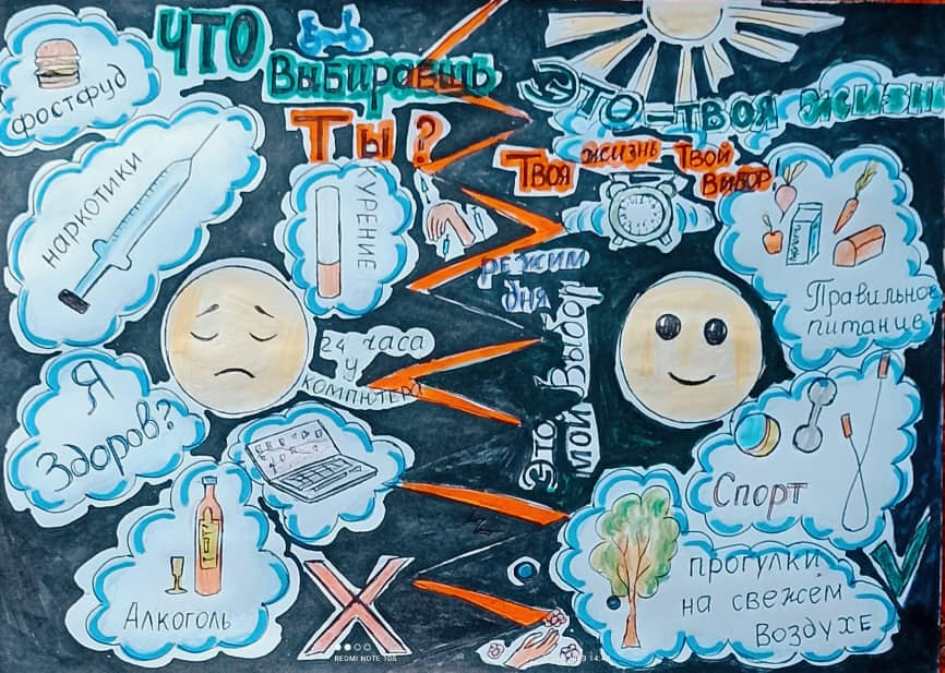 ЧТО
Выбираешь
Ты?
фостфуд
наркотики
КУРЕНИЕ
24 часа
у
компютера
Я
Здоров?
Алкоголь
Х
Это-твоя жизнь
Твоя жизнь Твой
выбор!
режим
дня
Это мой Выбор
Правильное
питание
Спорт
прогулки
на свежем
воздухе
REDMI NOTE 10S